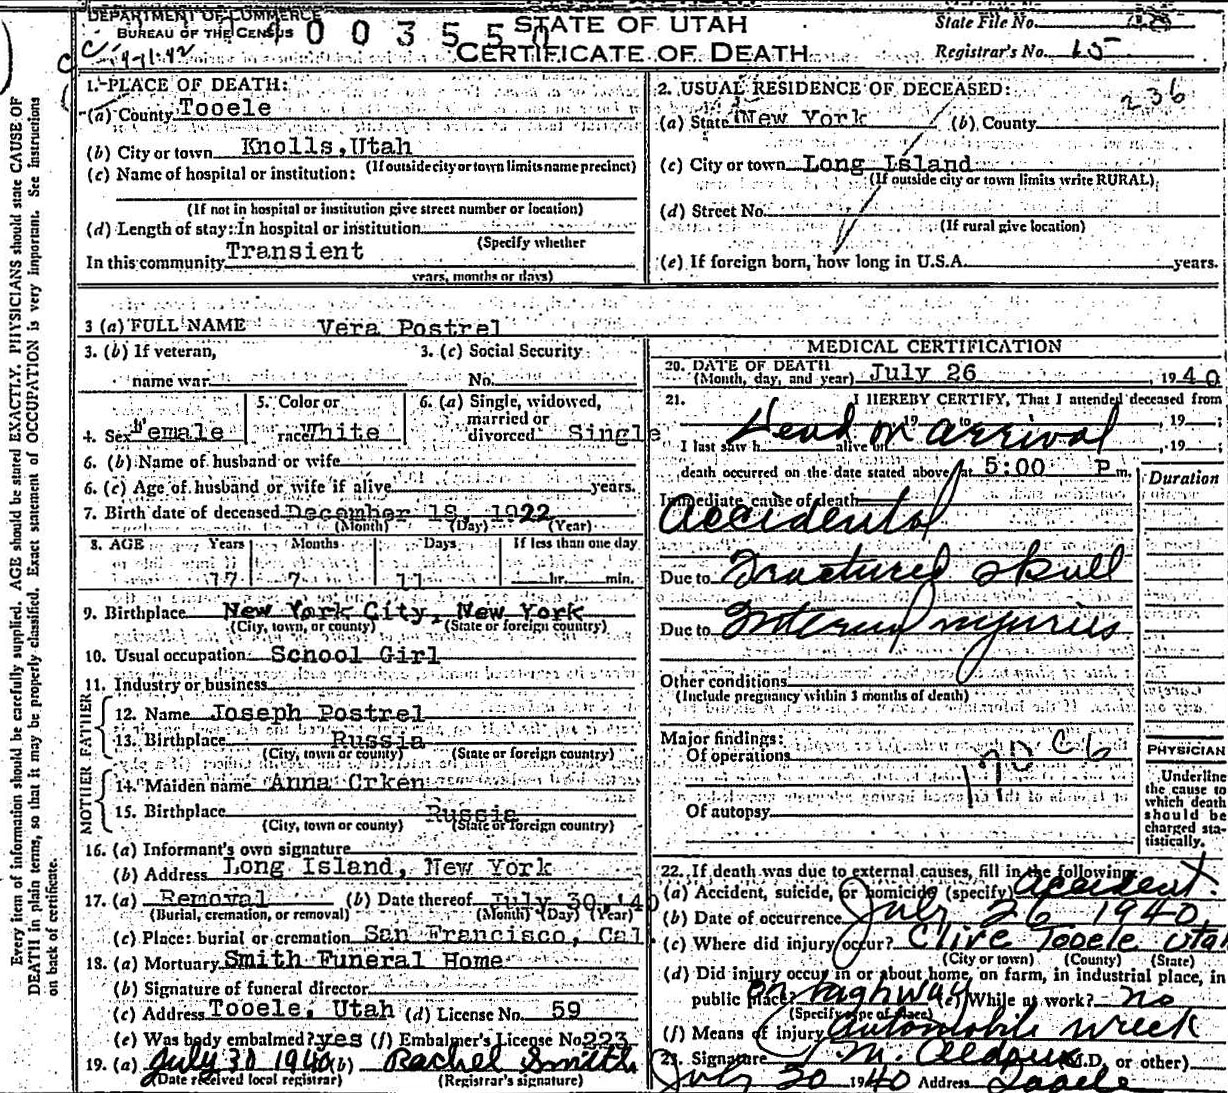 DEPARTMENT OF COMMERCE
BUREAU OF THE CENSUS
STATE OF UTAH
CERTIFICATE OF DEATH
State File No.
Registrar's No. 15
1. PLACE OF DEATH:
(a) County Tooele
(b) City or town Knolls, Utah
(If outside city or town limits name precinct)
(c) Name of hospital or institution:
(If not in hospital or institution give street number or location)
(d) Length of stay: In hospital or institution
(Specify whether
In this community Transient
years, months or days)
2. USUAL RESIDENCE OF DECEASED:
236
(a) State New York (b) County
(c) City or town Long Island
(If outside city or town limits write RURAL)
(d) Street No.
(If rural give location)
(e) If foreign born, how long in U.S.A. years.
3 (a) FULL NAME Vera Postrel
3. (b) If veteran,
name war
3. (c) Social Security
No.
4. Sex Female
5. Color or
race White
6. (a) Single, widowed,
married or
divorced Single
6. (b) Name of husband or wife
6. (c) Age of husband or wife if alive years.
7. Birth date of deceased December 18, 1922
(Month) (Day) (Year)
8. AGE Years Months Days If less than one day
17 7 11 hr. min.
9. Birthplace New York City, New York
(City, town, or county) (State or foreign country)
10. Usual occupation School Girl
11. Industry or business
FATHER
12. Name Joseph Postrel
13. Birthplace Russia
(City, town or county) (State or foreign country)
MOTHER
14. Maiden name Anna Crken
15. Birthplace Russia
(City, town or county) (State or foreign country)
16. (a) Informant's own signature
(b) Address Long Island, New York
17. (a) Removal (b) Date thereof July 30, '40
(Burial, cremation, or removal) (Month) (Day) (Year)
(c) Place: burial or cremation San Francisco, Cal
18. (a) Mortuary Smith Funeral Home
(b) Signature of funeral director
(c) Address Tooele, Utah (d) License No. 59
(e) Was body embalmed? yes (f) Embalmer's License No. 223
19. (a) July 30 1940 (b) Rachel Smith
(Date received local registrar) (Registrar's signature)
MEDICAL CERTIFICATION
20. DATE OF DEATH
(Month, day, and year) July 26, 1940
21. I HEREBY CERTIFY, That I attended deceased from
, 19 to , 19 ;
I last saw h alive on , 19 ;
Dead on arrival
death occurred on the date stated above at 5:00 P m.
Duration
Immediate cause of death
Accidental
Due to Fractured skull
Due to Internal injuries
Other conditions
(Include pregnancy within 3 months of death)
Major findings:
Of operations
170 C 6
Of autopsy
PHYSICIAN
Underline
the cause to
which death
should be
charged sta-
tistically.
22. If death was due to external causes, fill in the following:
(a) Accident, suicide, or homicide (specify) Accident.
(b) Date of occurrence July 26 1940
(c) Where did injury occur? Clive Tooele Utah
(City or town) (County) (State)
(d) Did injury occur in or about home, on farm, in industrial place, in
public place? on highway (e) While at work? no
(Specify type of place)
(f) Means of injury Automobile wreck
23. Signature (M.D. or other)
July 30 1940 Address Tooele
Every item of information should be carefully supplied. AGE should be stated EXACTLY. PHYSICIANS should state CAUSE OF
DEATH in plain terms, so that it may be properly classified. Exact statement of OCCUPATION is very important. See instructions
on back of certificate.